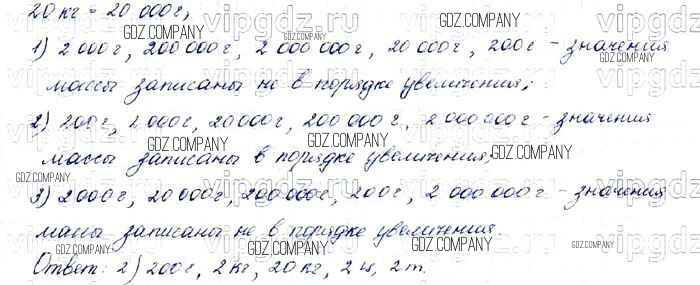 20 кг = 20 000 г,
1) 2 000 г, 200 000 г, 2 000 000 г, 20 000 г, 200 г – значения
массы записаны не в порядке увеличения;
2) 200 г, 2 000 г, 20 000 г, 200 000 г, 2 000 000 г – значения
массы записаны в порядке увеличения;
3) 2 000 г, 20 000 г, 200 000 г, 200 г, 2 000 000 г – значения
массы записаны не в порядке увеличения.
Ответ: 2) 200 г, 2 кг, 20 кг, 2 ц, 2 т.
GDZ.COMPANY
vipgdz.ru